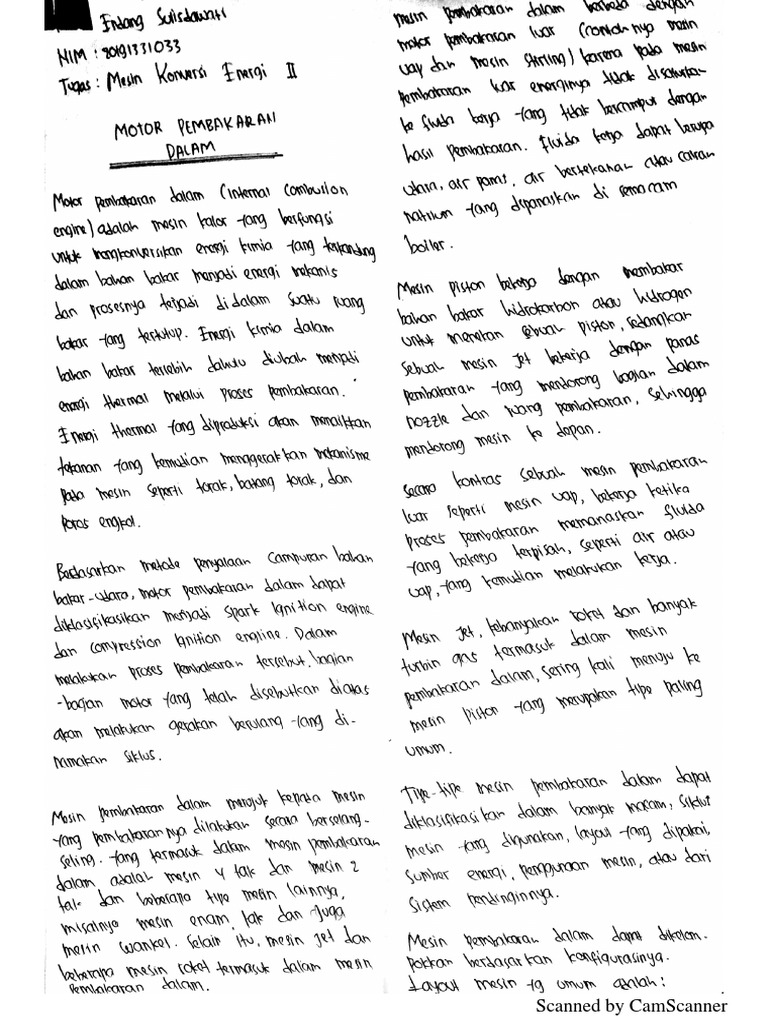 Endang Sulisdawati
NIM : 80191331033
Tugas : Mesin Konversi Energi II
MOTOR PEMBAKARAN
DALAM
Motor pembakaran dalam (internal combustion
engine) adalah mesin kalor yang berfungsi
untuk mengkonversikan energi kimia yang terkandung
dalam bahan bakar menjadi energi mekanis
dan prosesnya terjadi di dalam suatu ruang
bakar yang tertutup. Energi kimia dalam
bahan bakar terlebih dahulu diubah menjadi
energi thermal melalui proses pembakaran.
Energi thermal yang diproduksi akan menaikkan
tekanan yang kemudian menggerakkan mekanisme
pada mesin seperti torak, batang torak, dan
poros engkol.
Berdasarkan metode penyalaan campuran bahan
bakar-udara, motor pembakaran dalam dapat
diklasifikasikan menjadi spark ignition engine
dan compression ignition engine. Dalam
melakukan proses pembakaran tersebut, bagian
-bagian motor yang telah disebutkan diatas
akan melakukan gerakan berulang yang di-
namakan siklus.
Mesin pembakaran dalam merujuk kepada mesin
yang pembakarannya dilakukan secara berselang-
seling. Yang termasuk dalam mesin pembakaran
dalam adalah mesin 4 tak dan mesin 2
tak dan beberapa tipe mesin lainnya,
misalnya mesin enam tak dan juga
mesin wankel. Selain itu, mesin jet dan
beberapa mesin roket termasuk dalam mesin
pembakaran dalam.
mesin pembakaran dalam berbeda dengan
motor pembakaran luar (contohnya mesin
uap dan mesin stirling) karena pada mesin
pembakaran luar energinya tidak disalurkan
ke fluida kerja yang tidak bercampur dengan
hasil pembakaran. Fluida kerja dapat berupa
udara, air panas, air bertekanan atau cairan
natrium yang dipanaskan di semacam
boiler.
Mesin piston bekerja dengan membakar
bahan bakar hidrokarbon atau hidrogen
untuk menekan sebuah piston, sedangkan
sebuah mesin jet bekerja dengan panas
pembakaran yang mendorong bagian dalam
nozzle dan ruang pembakaran, sehingga
mendorong mesin ke depan.
Secara kontras sebuah mesin pembakaran
luar seperti mesin uap, bekerja ketika
proses pembakaran memanaskan fluida
yang bekerja terpisah, seperti air atau
uap, yang kemudian melakukan kerja.
Mesin jet, kebanyakan roket dan banyak
turbin gas termasuk dalam mesin
pembakaran dalam, sering kali menuju ke
mesin piston yang merupakan tipe paling
umum.
Tipe-tipe mesin pembakaran dalam dapat
diklasifikasikan dalam banyak macam, siklus
mesin yang digunakan, layout yang dipakai,
sumber energi, penggunaan mesin, atau dari
sistem pendinginnya.
Mesin pembakaran dalam dapat dikelom-
pokkan berdasarkan konfigurasinya.
Layout mesin yg umum adalah :
Scanned by CamScanner